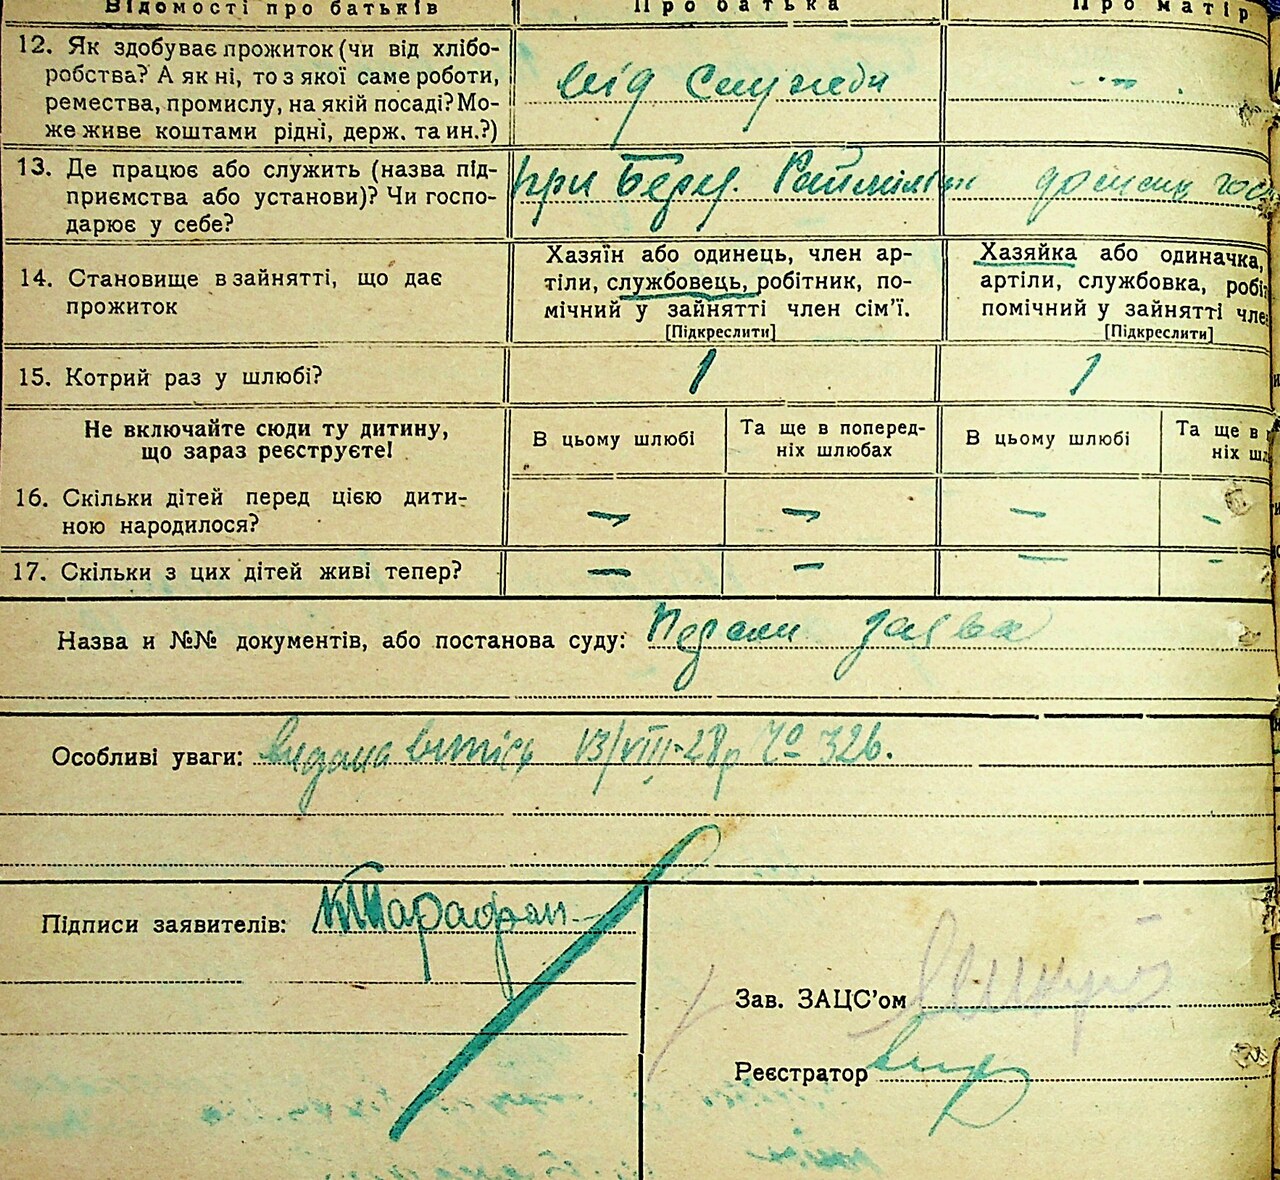 Відомості про батьків Про батька Про матір
12. Як здобуває прожиток (чи від хлібо-
робства? А як ні, то з якої саме роботи,
ремества, промислу, на якій посаді? Мо-
же живе коштами рідні, держ. та ин.?)
від служби
13. Де працює або служить (назва під-
приємства або установи)? Чи госпо-
дарює у себе?
при
14. Становище в зайнятті, що дає
прожиток
Хазяїн або одинець, член ар-
тіли, службовець, робітник, по-
мічний у зайнятті член сім'ї.
[Підкреслити]
Хазяйка або одиначка,
артіли, службовка, робі
помічний у зайнятті чле
[Підкреслити]
15. Котрий раз у шлюбі? 1 1
Не включайте сюди ту дитину,
що зараз реєструєте!
В цьому шлюбі
Та ще в поперед-
ніх шлюбах
В цьому шлюбі
Та ще в
ніх шл
16. Скільки дітей перед цією дити-
ною народилося?
— — — —
17. Скільки з цих дітей живі тепер? — — — —
Назва и №№ документів, або постанова суду: заява
Особливі уваги: видана витпісь 13/VIII-28р № 326.
Підписи заявителів:
Зав. ЗАЦС'ом
Реєстратор